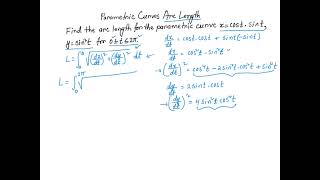 Parametric Curves Arc Length
Find the arc length for the parametric curve x=cost.sint,
y=sin²t for 0≤t≤2π.
L = ∫ₐᵇ √((dx/dt)²+(dy/dt)²) dt ←
L = ∫₀^2π √
dx/dt = cost.cost + sint(-sint)
dx/dt = cos²t - sin²t
→ (dx/dt)² = cos⁴t - 2sin²t cos²t + sin⁴t
dy/dt = 2sint cost
→ (dy/dt)² = 4sin²t cos²t